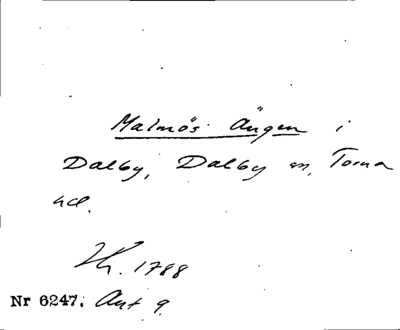 Malmös Ängen i
Dalby, Dalby sn, Torna
hd.
Kh. 1788
Nr 6247. Ant 9.